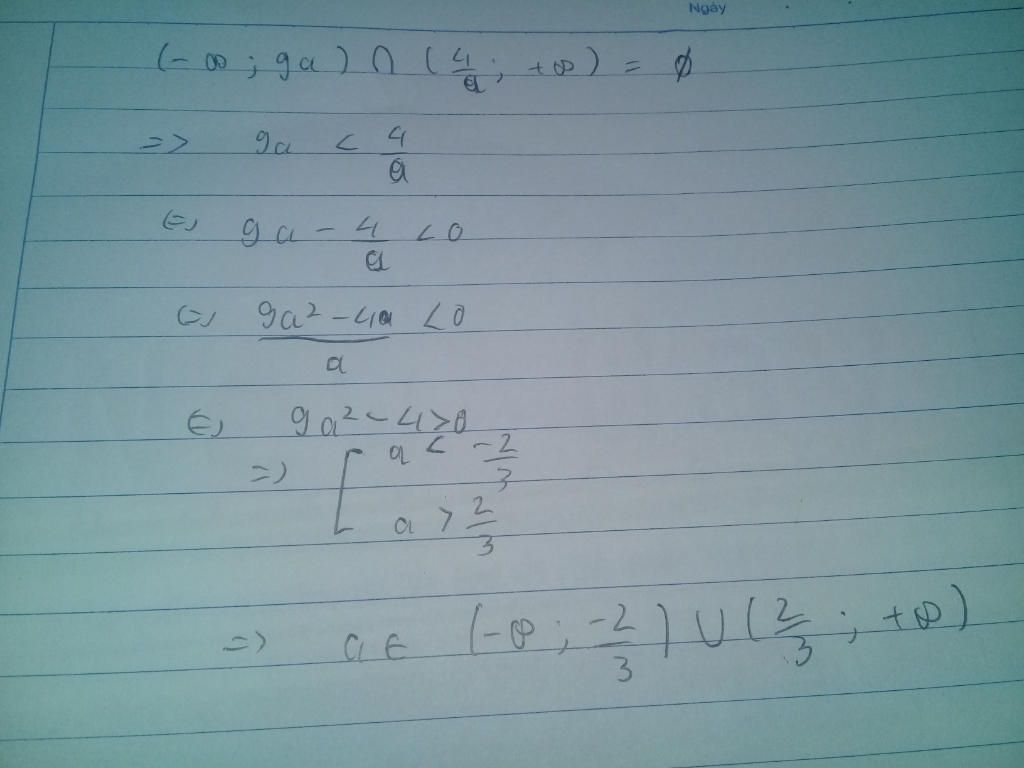 Ngày
(-∞ ; 9a) ∩ (4/a ; +∞) = ∅
=> 9a < 4/a
<=> 9a - 4/a < 0
<=> (9a² - 4a)/a < 0
<=> 9a² - 4 > 0
=> [ a < -2/3
a > 2/3
=> a ∈ (-∞ ; -2/3) ∪ (2/3 ; +∞)